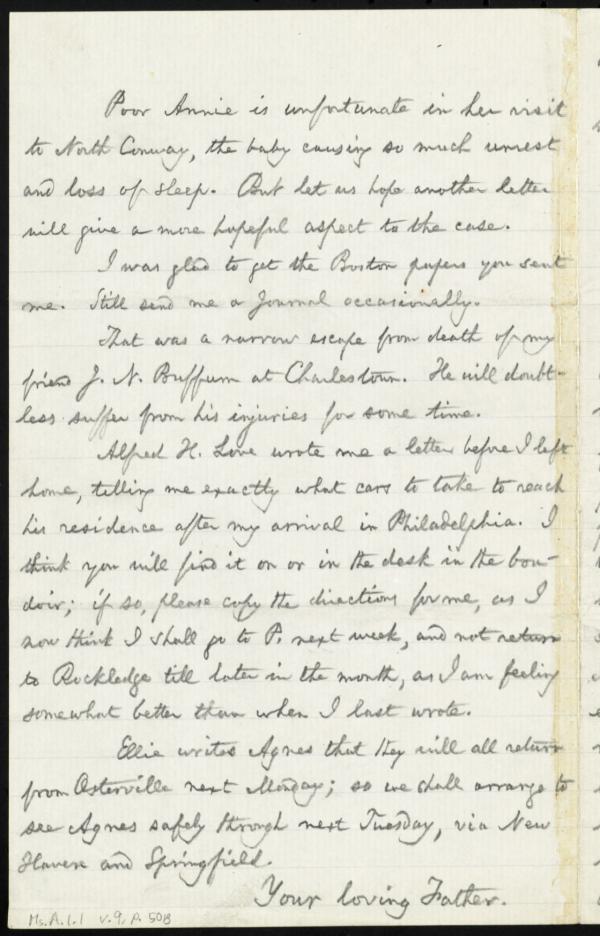 Poor Annie is unfortunate in her visit
to North Conway, the baby causing so much unrest
and loss of sleep. But let us hope another letter
will give a more hopeful aspect to the case.
I was glad to get the Boston papers you sent
me. Still send me a Journal occasionally.
That was a narrow escape from death of my
friend J. N. Buffum at Charlestown. He will doubt-
less suffer from his injuries for some time.
Alfred H. Love wrote me a letter before I left
home, telling me exactly what cars to take to reach
his residence after my arrival in Philadelphia. I
think you will find it on or in the desk in the bou-
doir; if so, please copy the directions for me, as I
now think I shall go to P. next week, and not return
to Rockledge till later in the month, as I am feeling
somewhat better than when I last wrote.
Ellie writes Agnes that they will all return
from Osterville next Monday; so we shall arrange to
see Agnes safely through next Tuesday, via New
Haven and Springfield.
Your loving Father.
Ms. A. 1. 1 v. 9, p. 50B